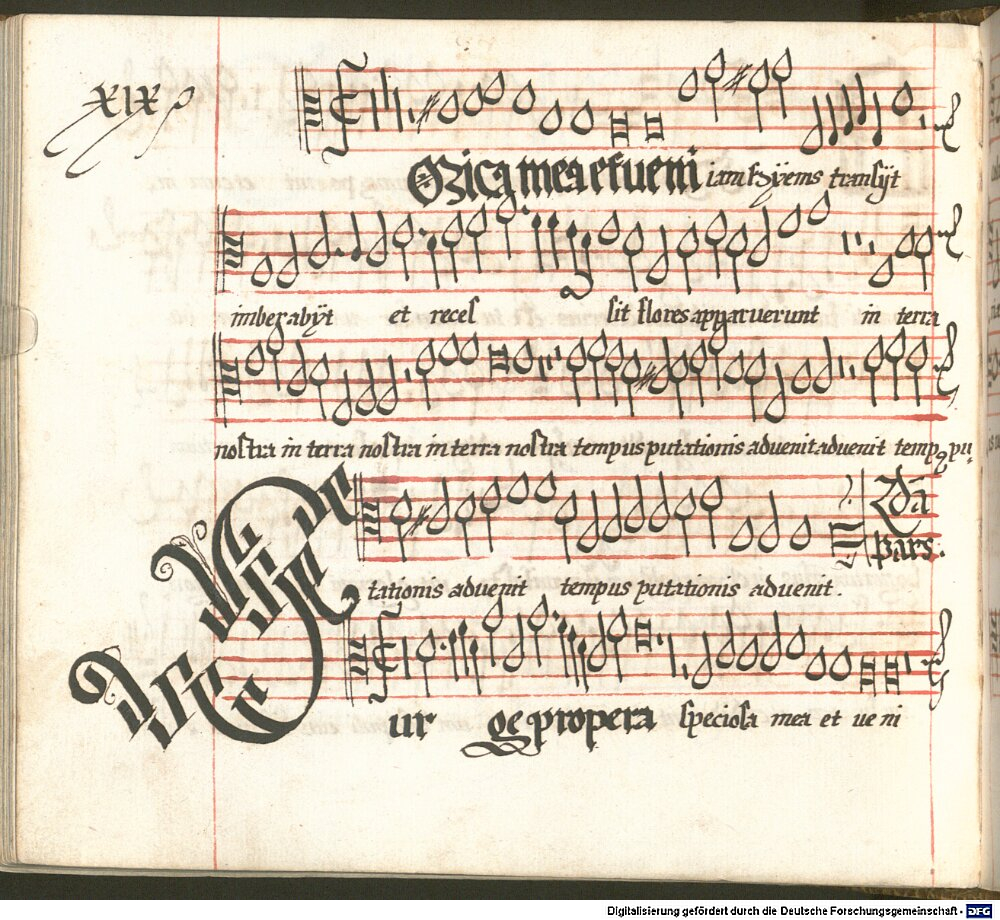 XIX
Amica mea et ueni iam hÿems transijt
imber abÿt et recel sit flores apparuerunt in terra
nostra in terra nostra in terra nostra tempus putationis aduenit aduenit temp9 pu-
2da
pars.
tationis aduenit tempus putationis aduenit.
Sur ge propera speciosa mea et ue ni
Digitalisierung gefördert durch die Deutsche Forschungsgemeinschaft - DFG